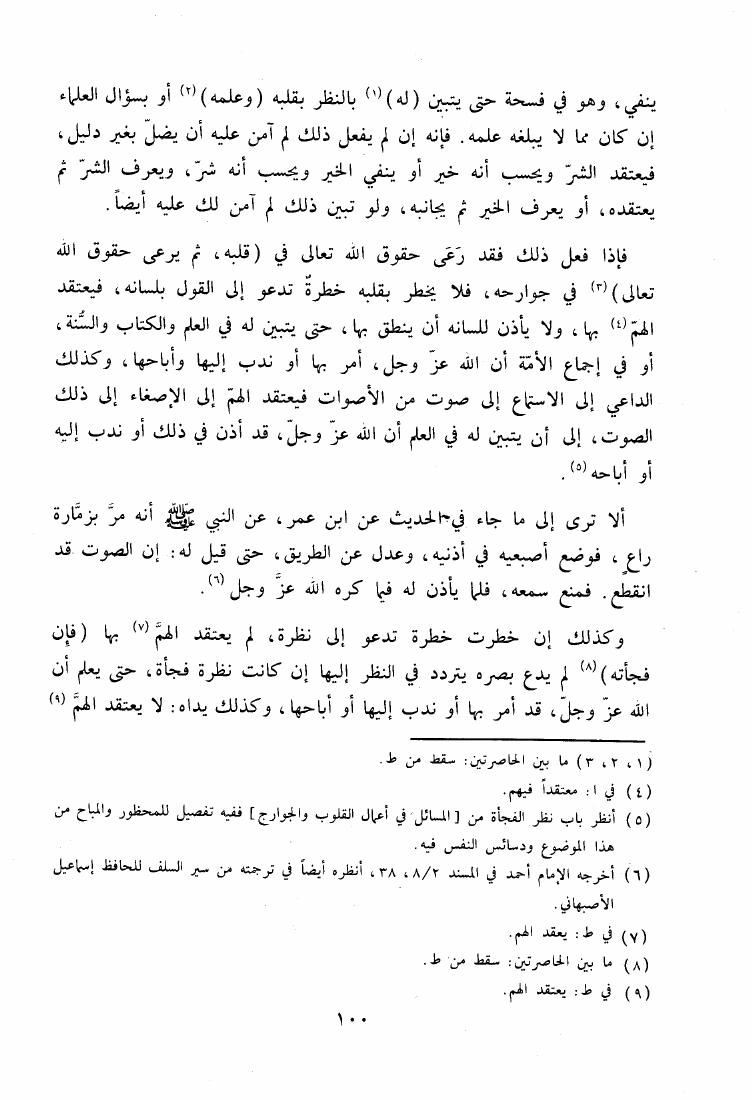 ينفي، وهو في فسحة حتى يتبين (له)(١) بالنظر بقلبه (وعلمه)(٢) أو بسؤال العلماء
إن كان مما لا يبلغه علمه. فإنه إن لم يفعل ذلك لم آمن عليه أن يضلّ بغير دليل،
فيعتقد الشرّ ويحسب أنه خير أو ينفي الخير ويحسب أنه شرّ، ويعرف الشرّ ثم
يعتقده، أو يعرف الخير ثم يجانبه، ولو تبين ذلك لم آمن لك عليه أيضاً.
فإذا فعل ذلك فقد رَعَى حقوق الله تعالى في (قلبه، ثم يرعى حقوق الله
تعالى)(٣) في جوارحه، فلا يخطر بقلبه خطرةٌ تدعو إلى القول بلسانه، فيعتقد
الهمّ(٤) بها، ولا يأذن للسانه أن ينطق بها، حتى يتبين له في العلم والكتاب والسُّنة،
أو في إجماع الأمّة أن الله عزّ وجل، أمر بها أو ندب إليها وأباحها، وكذلك
الداعي إلى الاستماع إلى صوت من الأصوات فيعتقد الهمّ إلى الإصغاء إلى ذلك
الصوت، إلى أن يتبين له في العلم أن الله عزّ وجلّ، قد أذن في ذلك أو ندب إليه
أو أباحه(٥).
ألا ترى إلى ما جاء في الحديث عن ابن عمر، عن النبي ﷺ أنه مرَّ بزمَّارة
راعٍ، فوضع أصبعيه في أذنيه، وعدل عن الطريق، حتى قيل له: إن الصوت قد
انقطع. فمنع سمعه، فلما يأذن له فيما كره الله عزَّ وجل(٦).
وكذلك إن خطرت خطرة تدعو إلى نظرة، لم يعتقد الهمَّ(٧) بها (فإن
فجأته)(٨) لم يدع بصره يتردد في النظر إليها إن كانت نظرة فجأة، حتى يعلم أن
الله عزّ وجلّ، قد أمر بها أو ندب إليها أو أباحها، وكذلك يداه: لا يعتقد الهمَّ(٩)
(١، ٢، ٣) ما بين الحاصرتين: سقط من ط.
(٤) في ا: معتقداً فيهم.
(٥) أنظر باب نظر الفجأة من [المسائل في أعمال القلوب والجوارح] ففيه تفصيل للمحظور والمباح من
هذا الموضوع ودسائس النفس فيه.
(٦) أخرجه الإمام أحمد في المسند ٨/٢، ٣٨، أنظره أيضاً في ترجمته من سير السلف للحافظ إسماعيل
الأصبهاني.
(٧) في ط: يعقد الهم.
(٨) ما بين الحاصرتين: سقط من ط.
(٩) في ط: يعتقد الهم.
١٠٠